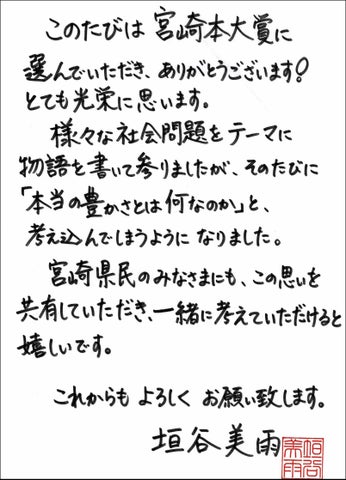 このたびは 宮崎本大賞に
選んでいただき、ありがとうございます!
とても光栄に思います。
様々な社会問題をテーマに
物語を書いて参りましたが、そのたびに
「本当の豊かさとは何なのか」と、
考え込んでしまうように なりました。
宮崎県民のみなさまにも、この思いを
共有していただき、一緒に考えていただけると
嬉しいです。
これからも よろしく お願い致します。
垣谷美雨
垣谷
美雨